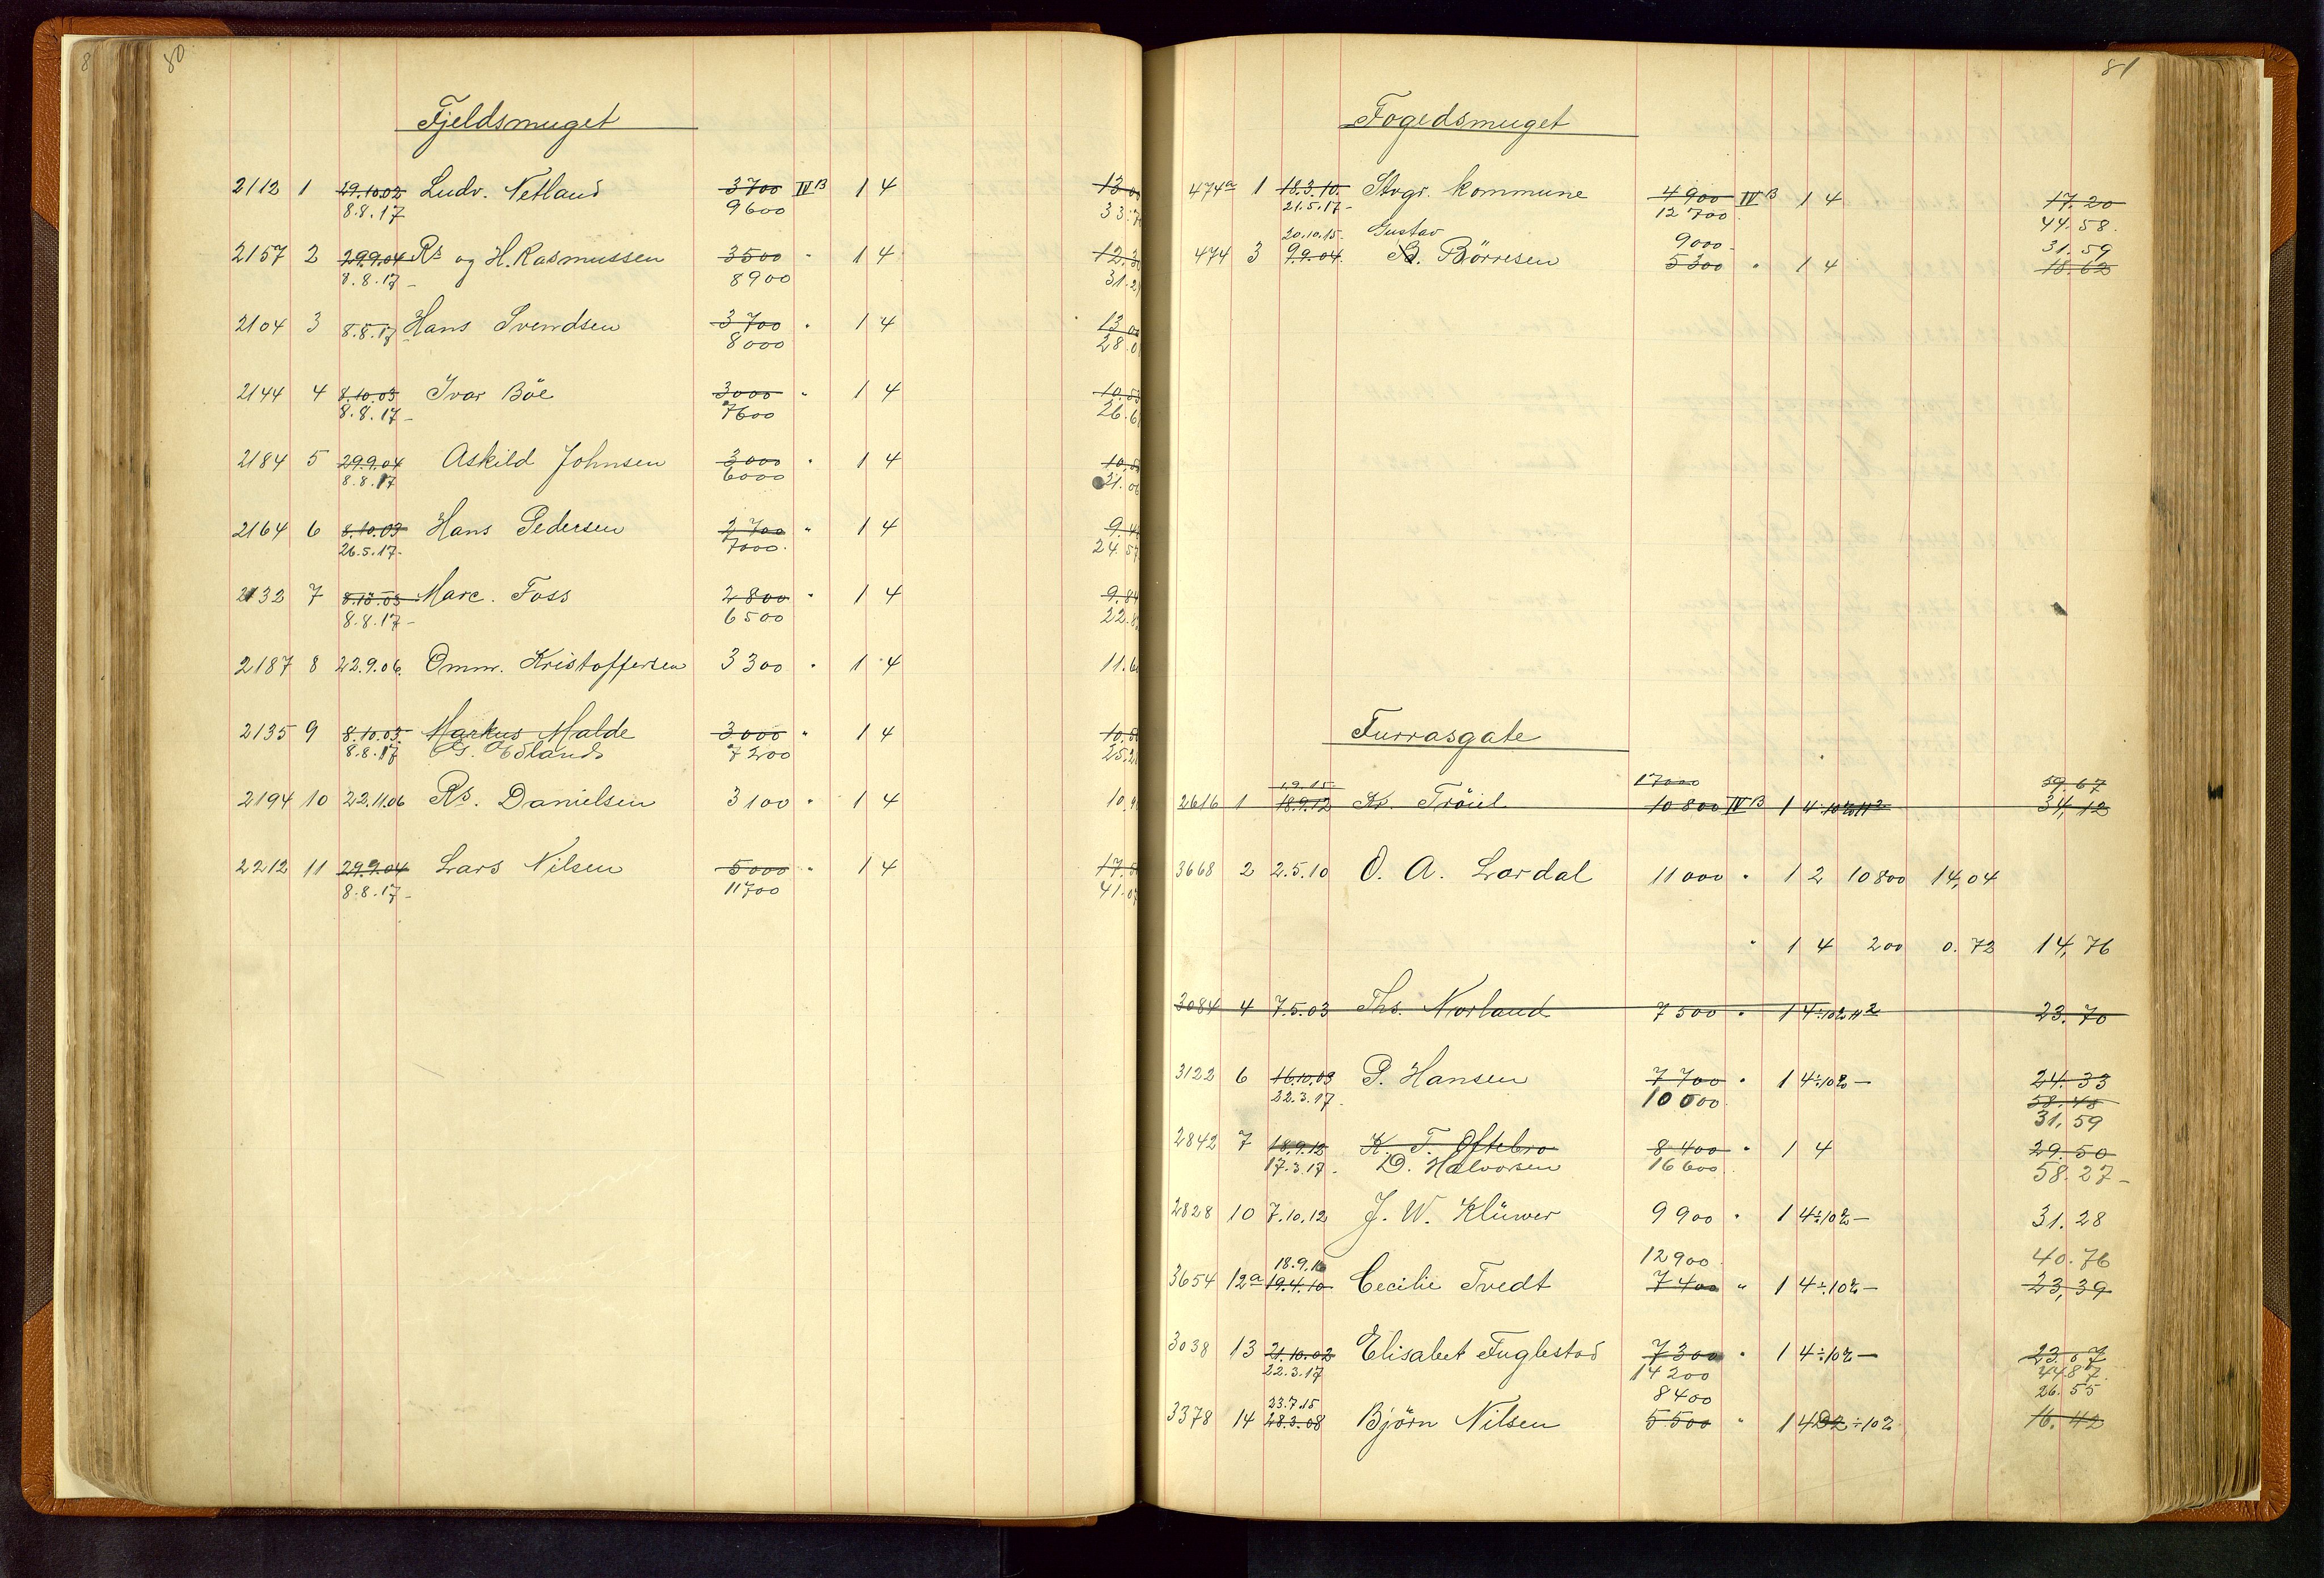 80
Fjeldsmuget
2112 1 29.10.02 Ludv. Netland 3700 IV B 1 4 13.00
8.8.17 9600 33.7
2157 2 29.9.04 Rs og H. Rasmussen 3500 " 1 4 12.30
8.8.17 8900 31.2
2104 3 8.8.17 Hans Svendsen 3700 " 1 4 13.00
8000 28.0
2144 4 8.10.03 Ivar Böe 3000 " 1 4 10.53
8.8.17 7600 26.6
2184 5 29.9.04 Askild Johnsen 3000 " 1 4 10.5
8.8.17 6000 21.06
2164 6 8.10.03 Hans Pedersen 2700 " 1 4 9.4
26.5.17 7000 24.57
2132 7 8.10.03 Marc. Foss 2800 " 1 4 9.84
8.8.17 6500 22.8
2187 8 22.9.06 Omm. Kristoffersen 3300 " 1 4 11.6
2135 9 8.10.03 Markus Malde 3000 " 1 4 10.5
8.8.17 7200 25.2
2194 10 22.11.06 Rs. Danielsen 3100 " 1 4 10.9
2212 11 29.9.04 Lars Nilsen 5000 " 1 4 17.5
8.8.17 11700 41.07
81
Fogedsmuget
474a 1 18.3.10 Stvgr. kommune 4900 IV B 1 4 17.20
21.5.17 12700 44.58
20.10.15 Gustav 9000 31.59
474 3 9.9.04 B. Börresen 5300 " 1 4 18.62
Furrasgate
1.9.15 17000 59.67
2616 1 18.9.12 Kr. Tröil 10800 IV B 1 4
34,12
3668 2 2.5.10 O. A. Lordal 11000 " 1 2 10800 14,04
" 1 4 200 0.72 14,76
3084 4 7.5.03 Ths. Norland 7500 " 1 4 ÷10% 23.70
3122 6 16.10.03 P. Hansen 7700 " 1 4 ÷10% — 24.33
22.3.17 10000 58.48
31,59
2842 7 18.9.12 K. T. Oftebro 8400 " 1 4 29.50
17.3.17 D. Halvorsen 16600 58.27
2828 10 7.10.12 J. W. Klüwer 9900 " 1 4 ÷10% — 31.28
18.9.16 12900 40.76
3654 12a 19.4.10 Cecilie Tvedt 7400 " 1 4 ÷10% — 23,39
3038 13 21.10.02 Elisabet Fuglestad 7300 " 1 4 ÷10% — 23.07
22.3.17 14200 44.87
23.7.15 8400 26.55
3378 14 28.3.08 Björn Nilsen 5500 " 1 4 ÷10% 16.42